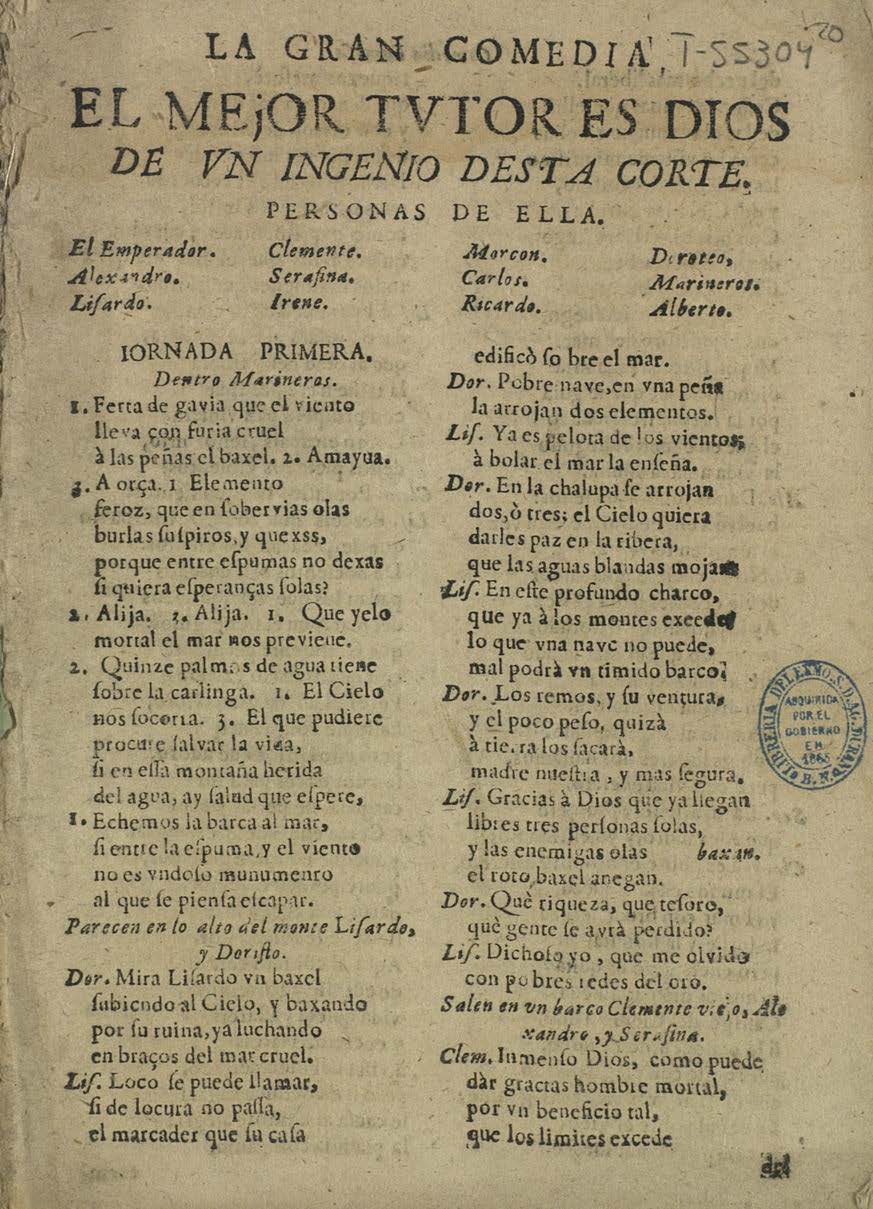 LA GRAN COMEDIA, T-55304 20
EL MEjOR TVTOR ES DIOS
DE VN INGENIO DESTA CORTE.
PERSONAS DE ELLA.
El Emperador. Clemente. Morcon. Doroteo,
Alexandro. Serafina. Carlos. Marineros.
Liſardo. Irene. Ricardo. Alberto.
IORNADA PRIMERA.
Dentro Marineros.
1. Ferra de gavia que el viento
lleva con furia cruel
à las peñas el baxel. 2. Amayua.
3. A orça. 1 Elemento
feroz, que en ſobervias olas
burlas ſuſpiros, y quexss,
porque entre eſpumas no dexas
ſi quiera eſperanças ſolas?
2. Alija. 3. Alija. 1. Que yelo
mortal el mar nos previene.
2. Quinze palmos de agua tiene
ſobre la carlinga. 1. El Cielo
nos ſocorra. 3. El que pudiere
procure ſalvar la vida,
ſi en eſſa montaña herida
del agua, ay ſalud que eſpere,
1. Echemos la barca al mar,
ſi entre la eſpuma, y el viento
no es vndoſo munumento
al que ſe pienſa eſcapar.
Parecen en lo alto del monte Liſardo,
y Doriſto.
Dor. Mira Liſardo vn baxel
ſubiendo al Cielo, y baxando
por ſu ruina, ya luchando
en braços del mar cruel.
Liſ. Loco ſe puede llamar,
ſi de locura no paſſa,
el marcader que ſu caſa
edificò ſo bre el mar.
Dor. Pobre nave, en vna peña
la arrojan dos elementos.
Liſ. Ya es pelota de los vientos;
à bolar el mar la enſeña.
Dor. En la chalupa ſe arrojan
dos, ò tres; el Cielo quiera
darles paz en la ribera,
que las aguas blandas mojan
Liſ. En eſte profundo charco,
que ya à los montes excede
lo que vna nave no puede,
mal podrà vn timido barco?
Dor. Los remos, y ſu ventura,
y el poco peſo, quizà
à tierra los ſacarà,
madre nueſtra, y mas ſegura.
Liſ. Gracias à Dios que ya llegan
libres tres perſonas ſolas,
y las enemigas olas baxan.
el roto baxel anegan.
Dor. Què riqueza, que teſoro,
què gente ſe avrà perdido?
Liſ. Dichoſo yo, que me olvido
con pobres redes del oro.
Salen en vn barco Clemente viejo, Ale
xandro, y Serafina.
Clem. Inmenſo Dios, como puede
dàr gractas hombre mortal,
por vn beneficio tal,
que los limites excede
del
ADQUIRIDA
POR EL
GOBIERNO
EN